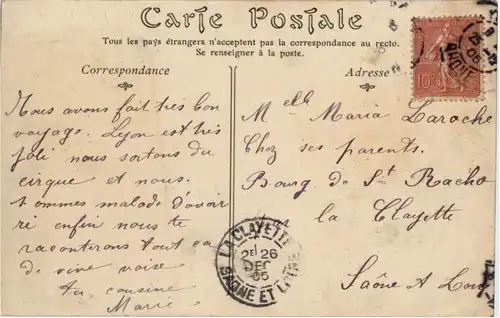 Carte Postale
Tous les pays étrangers n'acceptent pas la correspondance au recto.
Se renseigner à la poste.
Correspondance
Adresse
Nous avons fait très bon
voyage. Lyon est très
joli nous sortons du
cirque et nous
sommes malade d'avoir
ri enfin nous te
raconterons tout ça
de vive voise
ta cousine
Marie
Melle Maria Laroche
Chez ses parents.
Bourg de St Racho
la Clayette
Saône et Loire
LA CLAYETTE
26
DEC
05
SAONE ET LOIRE
10c
05
RHONE